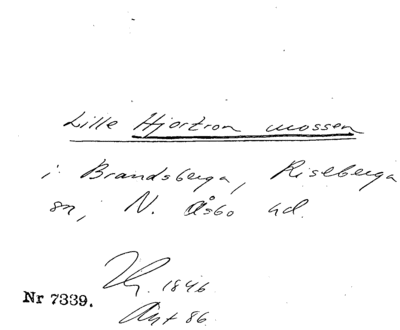 Lille Hjortron mossen
i Brandsberga, Riseberga
sn, N. Åsbo hd.
1846
Nr 7339.
86